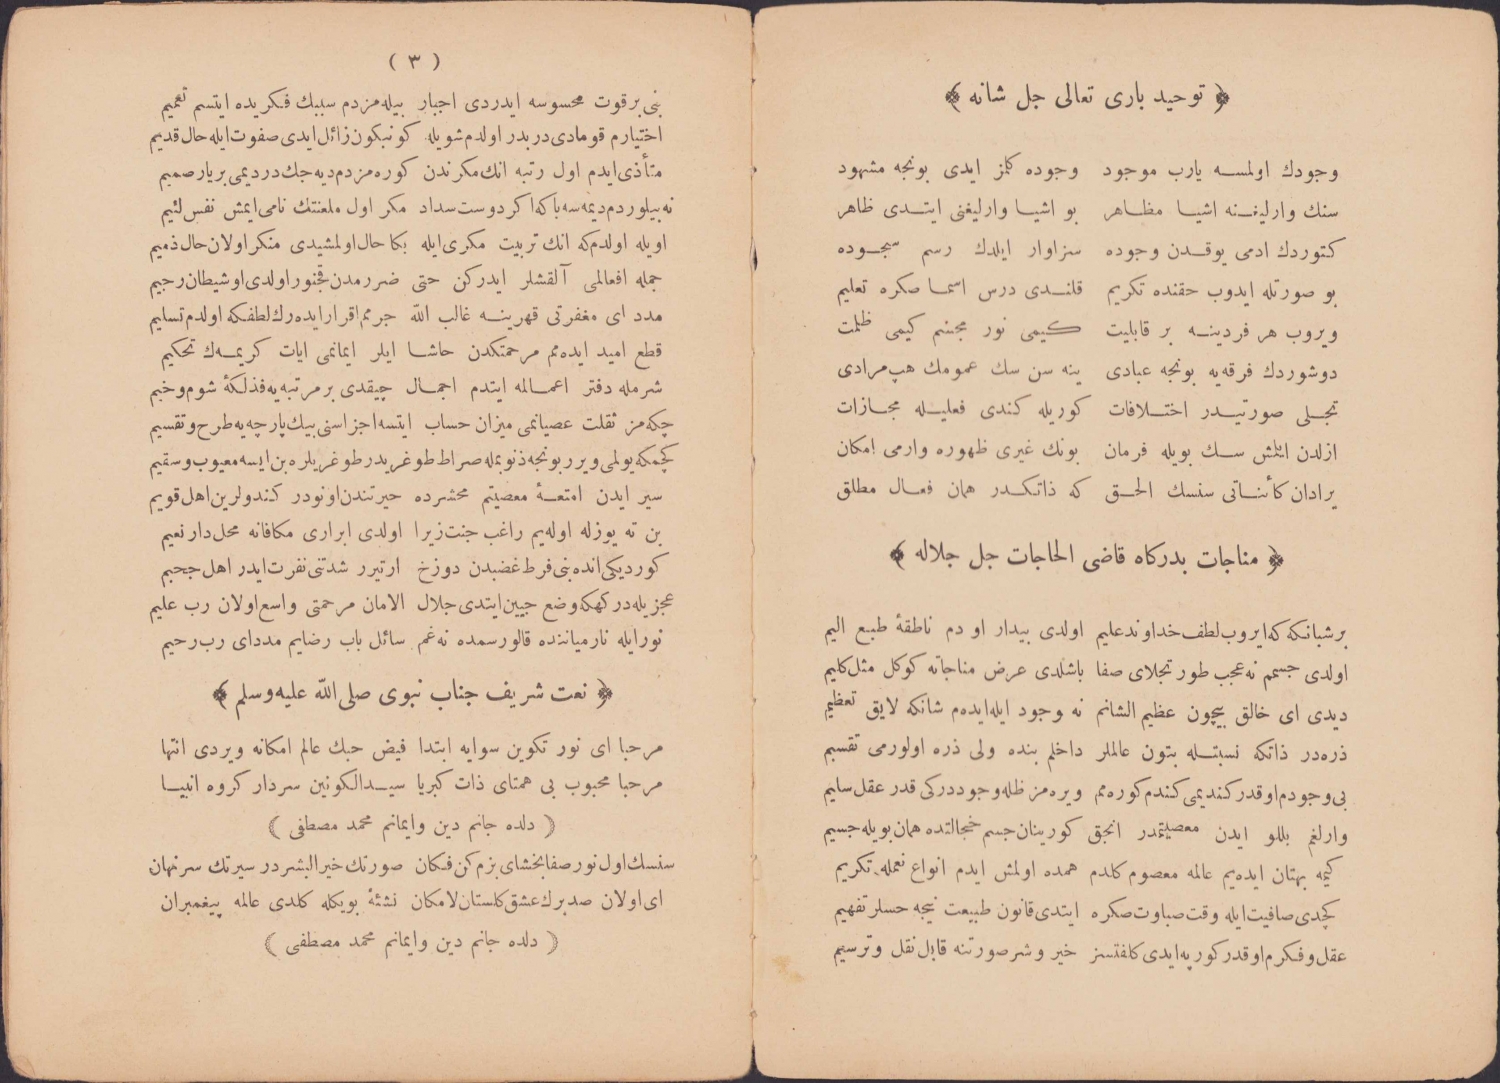 ﴿ توحيد بارى تعالى جل شانه ﴾
وجودك اولمســه يارب موجود وجوده كلمز ايدى بونجه مشهود
سنك وارليغــنه اشيا مظــاهر بو اشيا وارليغنى ايتــدى ظاهر
كتوردك ادمى يوقــدن وجوده سزاوار ايلدك رسم سجــوده
بو صورتله ايدوب حقنده تكريم قلنــدى درس اسمــا صكره تعليم
ويروب هر فردينــه بر قابليت كــيمى نور مجسم كيمى ظلمت
دوشوردك فرقه‌يه بونجه عبادى ينه سن سك عمومك هپ مرادى
تجــلى صورتيــدر اختــلافات كوريله كندى فعليــله مجــازات
ازلدن ايتلش ســك بويله فرمان بونك غيرى ظهوره وارمى امكان
يرادان كائنــاتى سنسك الحــق كه ذاتكــدر همان فعــال مطلق
﴿ مناجات بدركاه قاضى الحاجات جل جلاله ﴾
برشبانكه كه ايروب لطف خداوند عليم اولدى بيدار او دم ناطقۀ طبع اليم
اولدى جسمم نه عجب طور تجلاى صفا باشلدى عرض مناجاته كوكل مثل كليم
ديدى اى خالق بيچون عظيم الشانم نه وجود ايله ايده‌م شانكه لايق تعظيم
ذره‌در ذاتكه نسبتــله بتون عالملر داخلم بنده ولى ذره اولورمى تقسيم
بى وجودم اوقدر كنديمى كندم كوره‌مم ويره‌مز ظله وجود دركى قدر عقل سليم
وارلغم بللو ايدن معصيتمدر انجق كورينان جسم خجالتده همان بويله جسيم
كيمه بهتان ايده‌يم عالمه معصوم كلدم همده اولمش ايدم انواع نعمله تكريم
كچدى صافيت ايله وقت صباوت صكره ايتدى قانون طبيعت نيجه حسلر تفهيم
عقل وفكرم اوقدر كورپه ايدى كلفتسز خير و شر صورتنه قابل نقل و ترسيم
( ٣ )
بنى بر قوت محسوسه ايدردى اجبار بيله‌مزدم سببك فكريده ايتسم تعميم
اختيارم قومادى دربدر اولدم شويله كونبكون زائل ايدى صفوت ايله حال قديم
متأذى ايدم اول رتبه انك مكرندن كوره‌مزدم ديه‌جك دردیمی بر يار صميم
نه بيلوردم ديمه‌سه باكه اكر دوست سداد مكر اول ملعنتك نامى ايمش نفس لئيم
اويله اولدم كه انك تربيت مكرى ايله بكا حال اولمشيدى منكر اولان حال ذميم
جمله افعالمى آلقشلر ايدركن حتى ضررمدن قچنور اولدى او شيطان رجيم
مدد اى مغفرتى قهرينــه غالب الله جرمم اقرار ايده‌رك لطفكه اولدم تسليم
قطع اميد ايده‌مم مرحمتكدن حاشــا ايلر ايمانمى ايات كريمــه‌ك تحكيم
شرمله دفتر اعمــالمه ايتدم اجمــال چيقدى بر مرتبه‌يه فذلكۀ شوم و خيم
چكه‌مز ثقلت عصيانمى ميزان حساب ايتسه اجزاسنى بيك پارچه‌يه طرح و تقسيم
كچمكه يولمى ويرر بونجه ذنوبمله صراط طوغريدر طوغريلره بن ايسه معيوب و سقيم
سير ايدن امتعــۀ معصيتم محشرده حيرتندن اونودر كندولرين اهل قويم
بن نه يوزله اوله‌يم راغب جنت زيرا اولدى ابرارى مكافاته محل دار نعيم
كورديكى انده بنى فرط غضبدن دوزخ ارتيرر شدتنى نفرت ايدر اهل جحيم
عجز يله دركهكه وضع جبين ايتدى جلال الامان مرحمتى واسع اولان رب عليم
نور ايله نار مياننده قالورسمده نه غم سائل باب رضايم مدد اى رب رحيم
﴿ نعت شريف جناب نبوى صلى الله عليه وسلم ﴾
مرحبا اى نور تكوين سوايه ابتدا فيض حبك عالم امكانه ويردى انتها
مرحبا محبوب بى همتاى ذات كبريا سيــدالكونين سردار كروه انبيــا
( دلده جانم دين وايمانم محمد مصطفى )
سنسك اول نور صفابخشاى بزم كن فكان صورتك خير البشردر سيرتك سر نهان
اى اولان صدبرك عشق كلستان لامكان نشئۀ بويكله كلدى عالمه پيغمبران
( دلده جانم دين وايمانم محمد مصطفى )